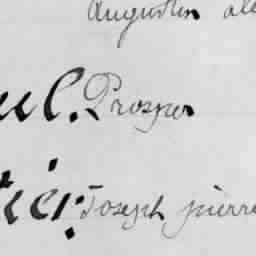 Augustin
ul. Prosper
ier. Joseph pierre